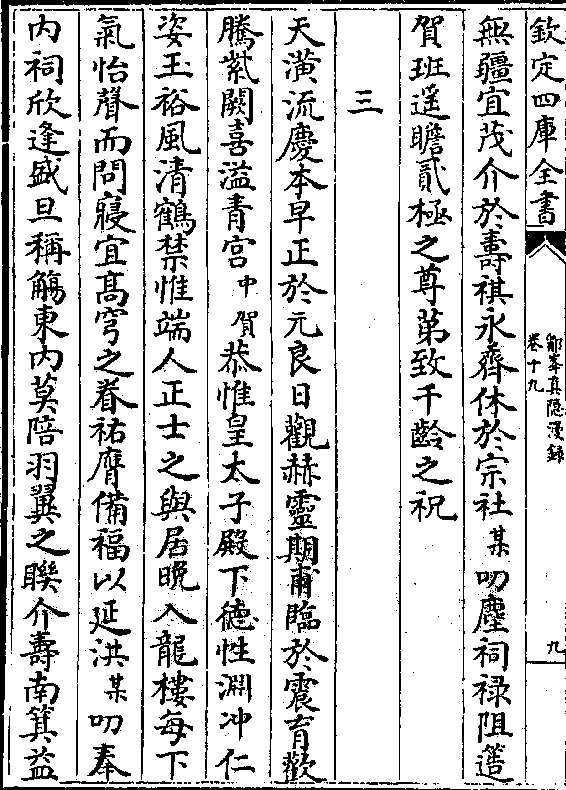 欽定四庫全書
鄮峯真隠漫録
卷十九
九
無疆宜茂介於壽祺永齊休於宗社某叨塵祠禄阻簉
賀班遥瞻貳極之尊苐致千齡之祝
三
天潢流慶本早正於元良日觀赫靈期甫臨於震育歡
騰紫闕喜溢青宫中賀恭惟皇太子殿下德性淵冲仁
姿玉裕風清鶴禁惟端人正士之與居晩入龍樓每下
氣怡聲而問寢宜髙穹之眷祐膺備福以延洪某叨奉
内祠欣逢盛旦稱觴東内莫陪羽翼之聨介壽南箕益